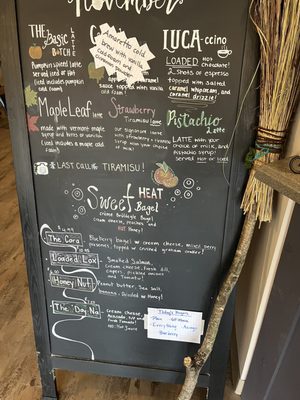 November
THE
Basic
LATTE
BATCH
Pumpkin spice latte
served iced or hot
(iced includes a pumpkin
cold foam!)
Amaretto cold
brew with vanilla
cold foam and
topped with caramel sauce
LUCA-ccino
LOADED HOT
Chocolate!
2 shots of espresso
topped with salted
caramel whipcream and
caramel drizzle!
Maple Leaf latte
made with vermont maple
syrup and barrels of
vanilla. Iced includes a
maple cold foam!
Strawberry
Tiramisu Latte
our signature latte
Pistachio
Latte
LATTE WITH your
choice of milk, and
Pistachio syrup!
served Hot or iced
*LAST CALL: TIRAMISU!
Sweet HEAT
Bagel
Crème Brûlée Bagel
cream cheese, peaches and
HOT Honey!
The Cora
Blueberry bagel w/ cream cheese, mixed berry
preserves, topped w/ crushed graham cracker!
Loaded Lox
- Smoked Salmon,
cream cheese, fresh dill,
capers, pickled onions
and Tomato!
Honey Nut
Peanut butter, Sea Salt,
banana, drizzled w/ Honey!
The "Bay Na
- Cream cheese,
Today's Bagels
Plain
Everything
Asiago
Blueberry